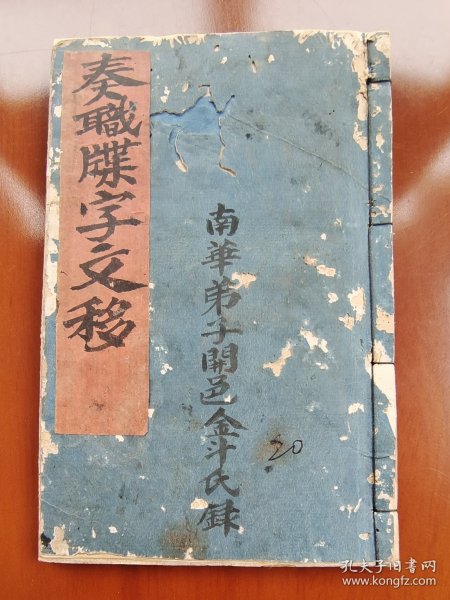 奏職牒字文移
南華弟子開邑金斗氏録
20
孔夫子旧书网
www.kongfz.com